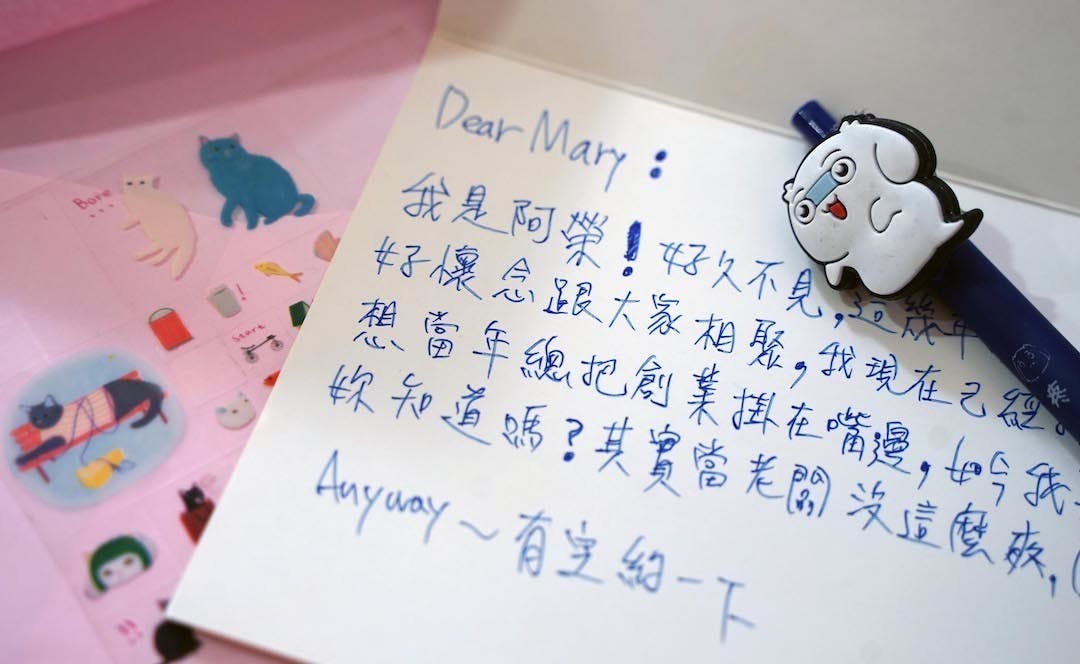 Dear Mary：
我是阿榮！好久不見，這幾年
好懷念跟大家相聚，我現在己經
想當年總把創業掛在嘴邊，如今我
妳知道嗎？其實當老闆沒這麼爽，(
Anyway～有空約一下
Bore
Start